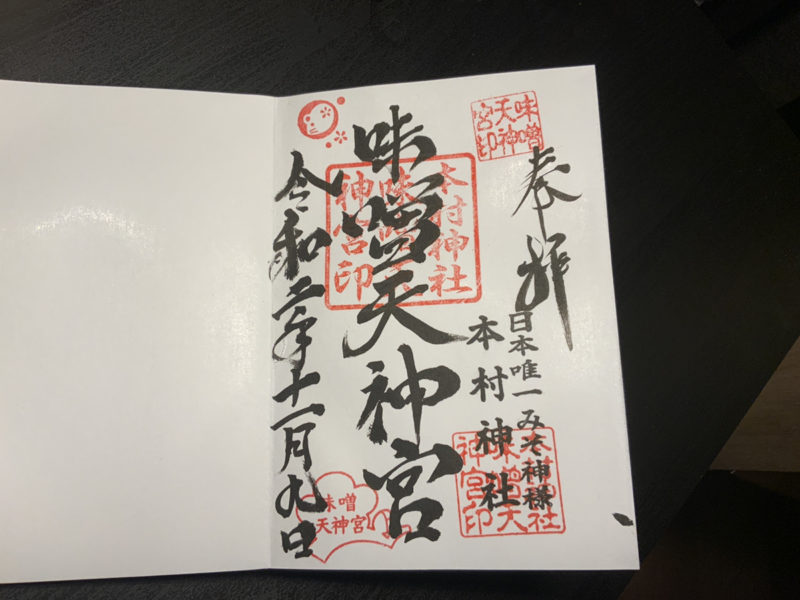 奉拝
日本唯一みそ神様
本村神社
味噌天神宮
令和二年十一月九日
味噌
天神
宮印
本村神社
味噌天
神宮印
本村神社
味噌天
神宮印
味噌
天神宮